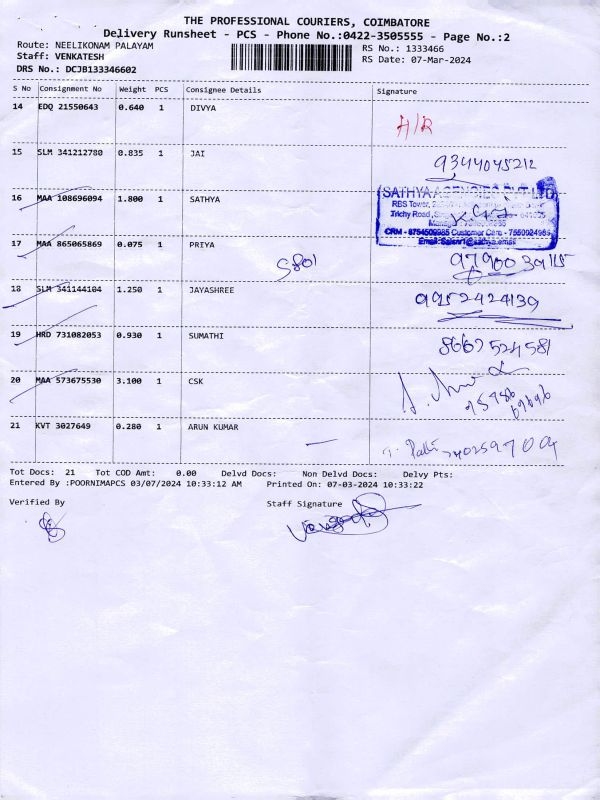 THE PROFESSIONAL COURIERS, COIMBATORE
Delivery Runsheet - PCS - Phone No.:0422-3505555 - Page No.:2
Route: NEELIKONAM PALAYAM
RS No.: 1333466
Staff: VENKATESH
RS Date: 07-Mar-2024
DRS No.: DCJB133346602
S No Consignment No Weight PCS Consignee Details Signature
14 EDQ 21550643 0.640 1 DIVYA
H/R
15 SLM 341212780 0.835 1 JAI
9344045212
16 MAA 108696094 1.800 1 SATHYA
SATHYA AGENCIES PVT LTD
RBS Tower,
Trichy Road,
CRM - 8754509985 Customer Care - 7550024985
17 MAA 865065869 0.075 1 PRIYA
5801
18 SLM 341144104 1.250 1 JAYASHREE
9952424139
19 HRD 731082053 0.930 1 SUMATHI
8667524581
20 MAA 573675530 3.100 1 CSK
21 KVT 3027649 0.280 1 ARUN KUMAR
Tot Docs: 21 Tot COD Amt: 0.00 Delvd Docs: Non Delvd Docs: Delvy Pts:
Entered By :POORNIMAPCS 03/07/2024 10:33:12 AM Printed On: 07-03-2024 10:33:22
Verified By Staff Signature